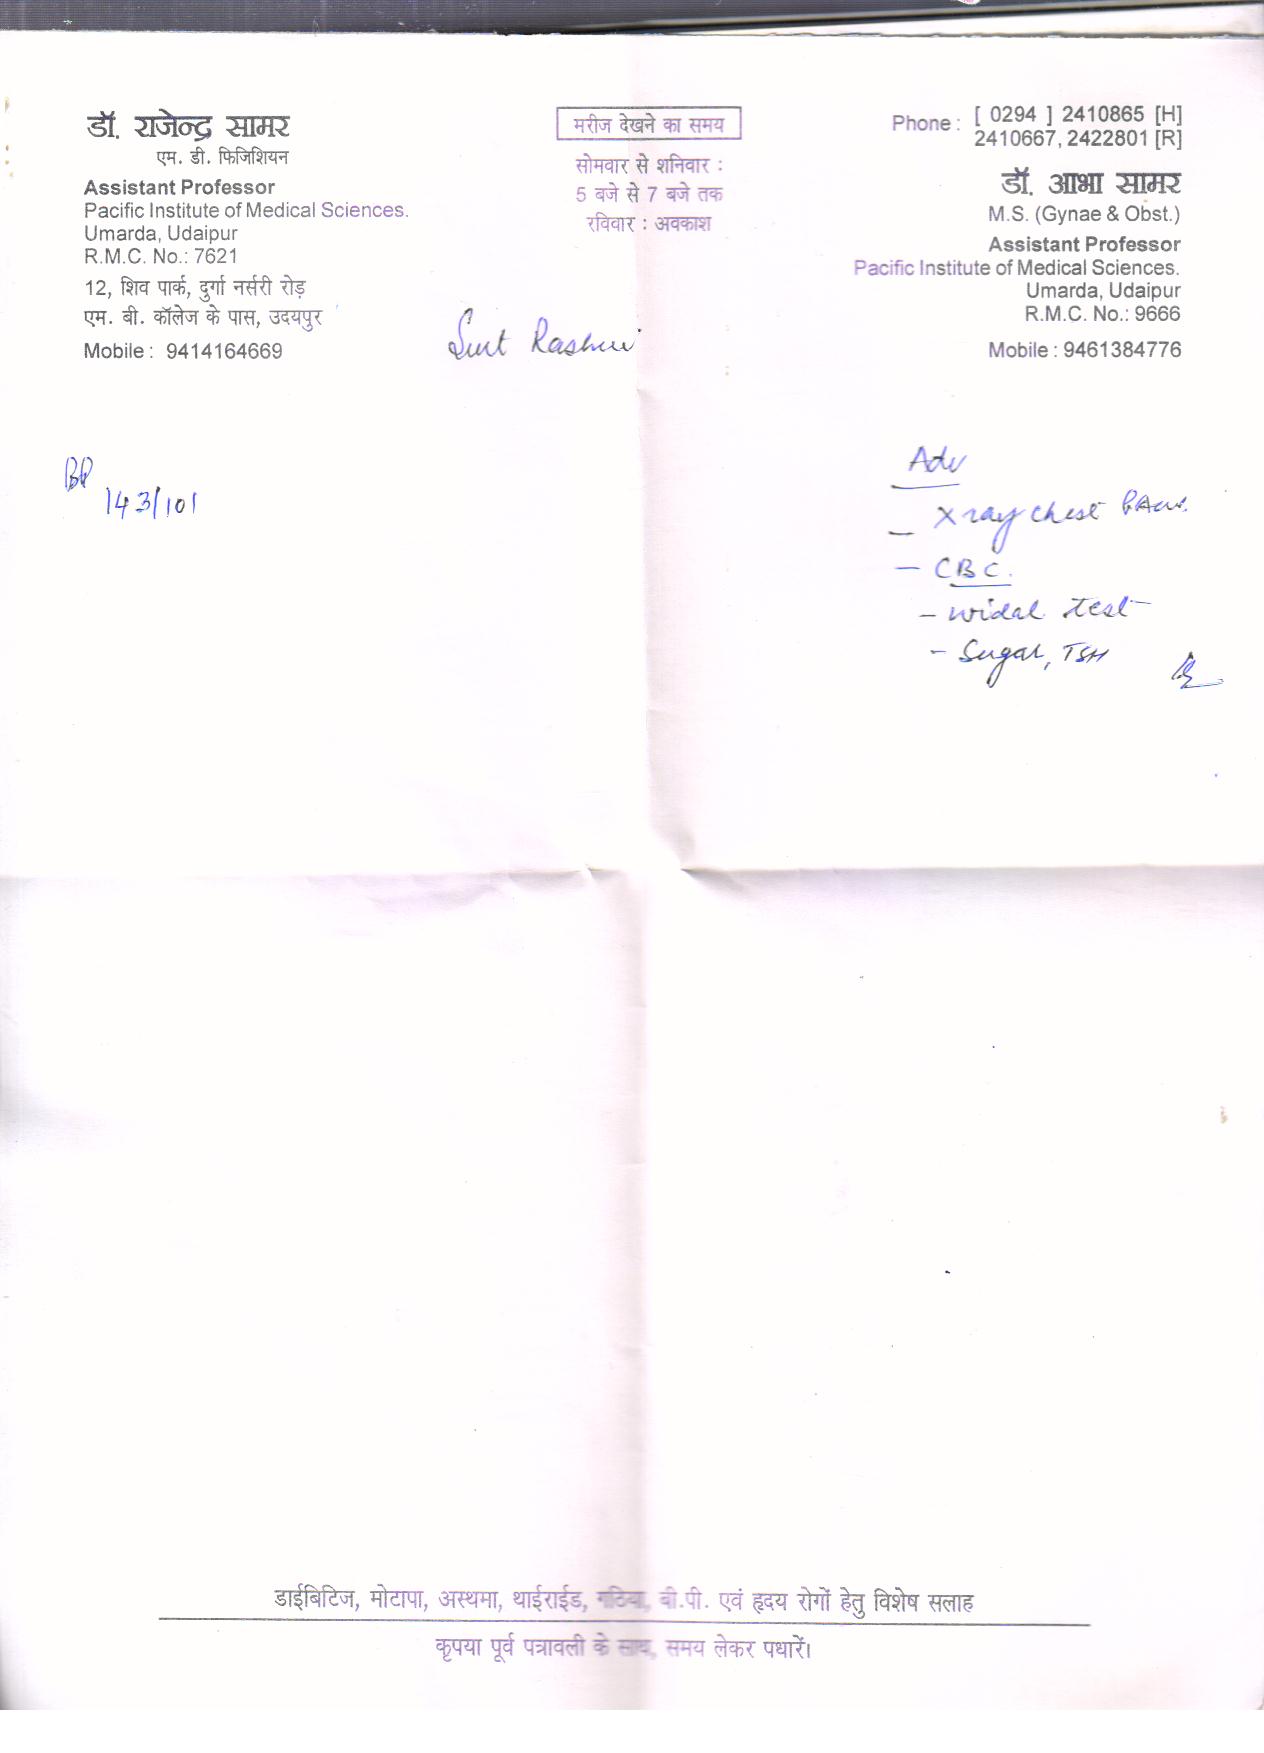 डॉ. राजेन्द्र सामर
एम. डी. फिजिशियन
Assistant Professor
Pacific Institute of Medical Sciences.
Umarda, Udaipur
R.M.C. No.: 7621
12, शिव पार्क, दुर्गा नर्सरी रोड़
एम. बी. कॉलेज के पास, उदयपुर
Mobile : 9414164669
मरीज देखने का समय
सोमवार से शनिवार :
5 बजे से 7 बजे तक
रविवार : अवकाश
Phone : [ 0294 ] 2410865 [H]
2410667, 2422801 [R]
डॉ. आभा सामर
M.S. (Gynae & Obst.)
Assistant Professor
Pacific Institute of Medical Sciences.
Umarda, Udaipur
R.M.C. No.: 9666
Mobile : 9461384776
Smt Rashmi
BP
143/101
Adv
- X ray chest PA
- CBC.
- widal test
- Sugar, TSH
डाईबिटिज, मोटापा, अस्थमा, थाईराईड, गठिया, बी.पी. एवं हृदय रोगों हेतु विशेष सलाह
कृपया पूर्व पत्रावली के साथ, समय लेकर पधारें।